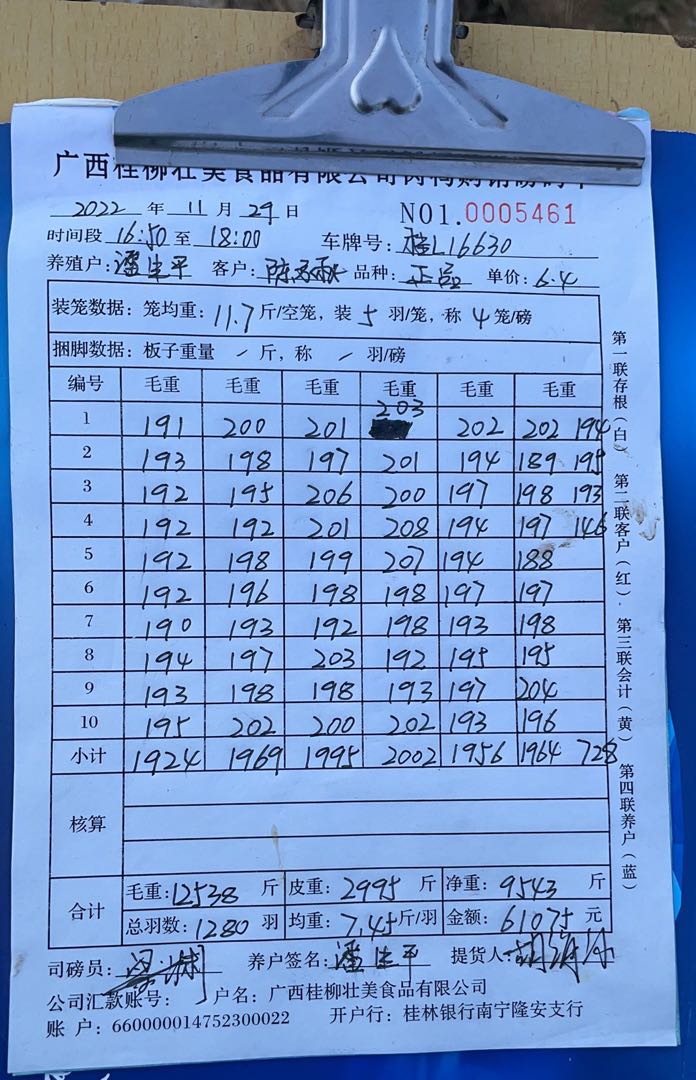 广西桂柳壮美食品有限公司肉鸭购销磅码单
2022 年 11 月 29 日 NO1.0005461
时间段 16:50 至 18:00 车牌号: 桂L16630
养殖户: 潘生平 客户: 品种: 正品 单价: 6.4
装笼数据: 笼均重: 11.7 斤/空笼, 装 5 羽/笼, 称 4 笼/磅
捆脚数据: 板子重量 / 斤, 称 / 羽/磅
编号 毛重 毛重 毛重 毛重 毛重 毛重
1 191 200 201 203 202 202 194
2 193 198 197 201 194 189 195
3 192 195 206 200 197 198 193
4 192 192 201 208 194 197 146
5 192 198 199 207 194 188
6 192 196 198 198 197 197
7 190 193 192 198 193 198
8 194 197 203 192 195 195
9 193 198 198 193 197 204
10 195 202 200 202 193 196
小计 1924 1969 1995 2002 1956 1964 728
核算
合计 毛重: 12538 斤 皮重: 2995 斤 净重: 9543 斤
总羽数: 1280 羽 均重: 7.45 斤/羽 金额: 61075 元
司磅员: 养户签名: 潘生平 提货人:
公司汇款账号: 户名: 广西桂柳壮美食品有限公司
账 户: 660000014752300022 开户行: 桂林银行南宁隆安支行
第一联存根(白) 第二联客户(红) 第三联会计(黄) 第四联养户(蓝)